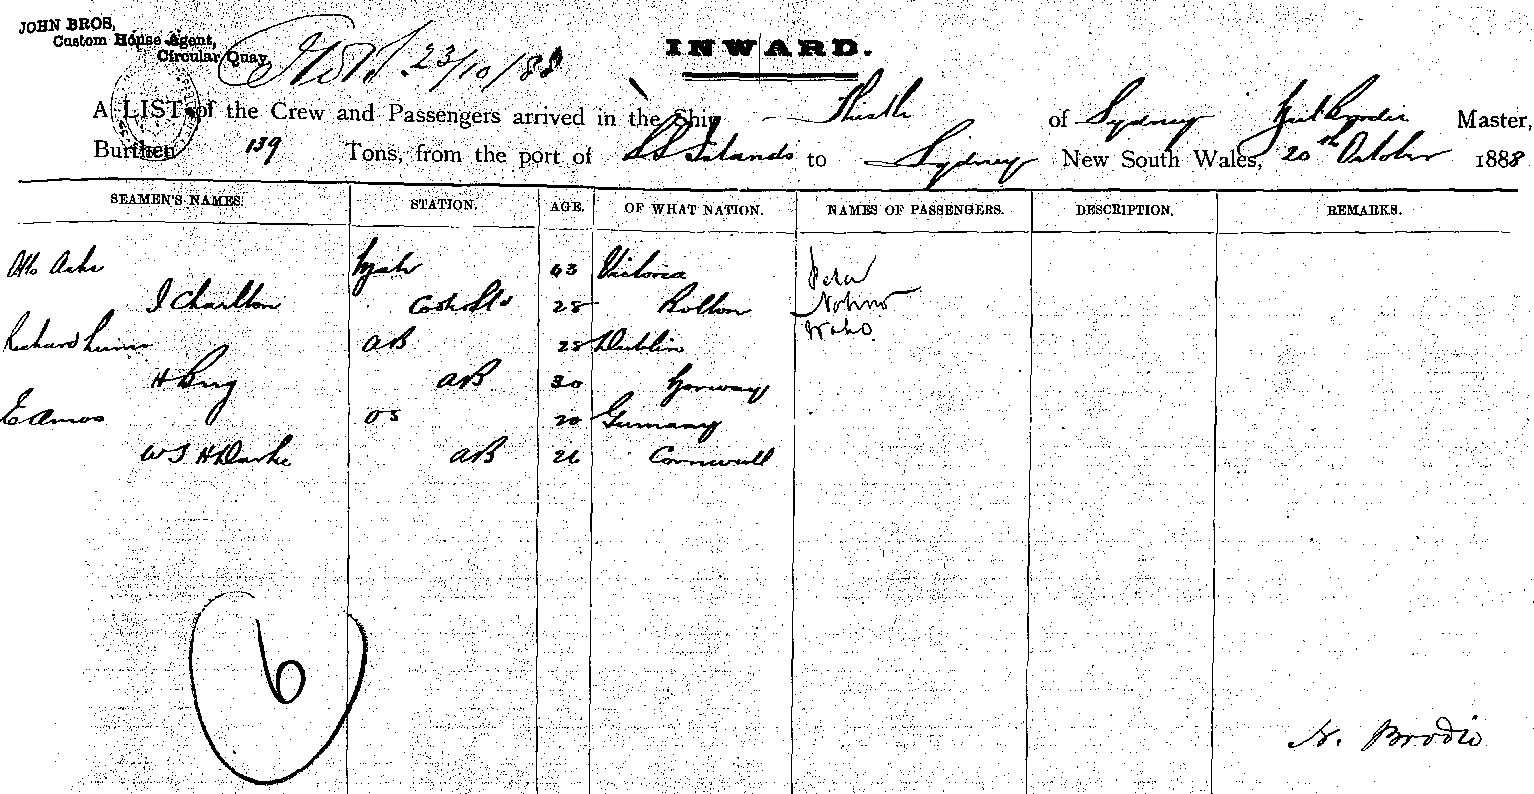 JOHN BROS,
Custom House Agent,
Circular Quay,
23/10/88
INWARD.
A LIST of the Crew and Passengers arrived in the Ship Thistle of Sydney Brodie Master,
Burthen 139 Tons, from the port of SS Islands to Sydney New South Wales, 20th October 1888
SEAMEN'S NAMES. STATION. AGE. OF WHAT NATION. NAMES OF PASSENGERS. DESCRIPTION. REMARKS.
Otto Ashe Mate 43 Victoria Peter
J Charlton 28 Bolton
Richard AB 28 Dublin
H Berg AB 30 Norway
E Amos OS 20 Germany
W J H Darke AB 26 Cornwall
6
N. Brodie